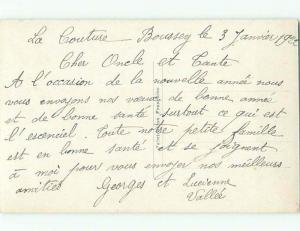 La Couture - Boussey le 3 Janvier
Cher Oncle et Tante
A l'occasion de la nouvelle année nous
vous envoyons nos vœux de bonne année
et de bonne santé surtout ce qui est
l'escenciel. Toute notre petite famille
est en bonne santé et se joignent
à moi pour vous envoyer nos meilleurs
amitiés Georges et Lucienne
Vallée